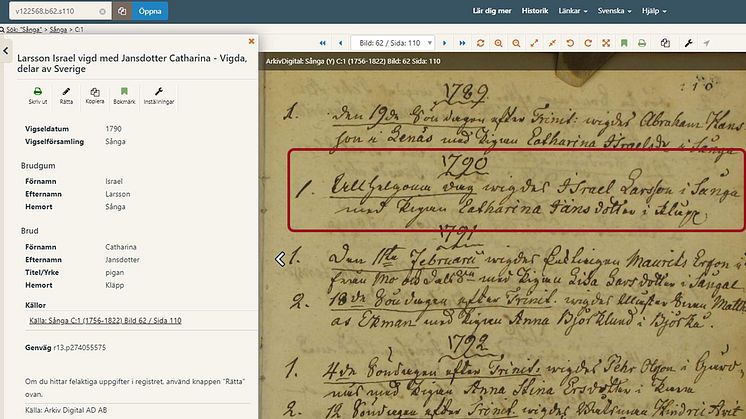 v122568.b62.s110
Öppna
Lär dig mer Historik Länkar Svenska Hjälp
Sök: "Sånga" > Sånga > C:1
Larsson Israel vigd med Jansdotter Catharina - Vigda, delar av Sverige
Skriv ut Rätta Kopiera Bokmärk Inställningar
Vigseldatum 1790
Vigselförsamling Sånga
Brudgum
Förnamn Israel
Efternamn Larsson
Hemort Sånga
Brud
Förnamn Catharina
Efternamn Jansdotter
Titel/Yrke pigan
Hemort Kläpp
Källor
Källa: Sånga C:1 (1756-1822) Bild 62 / Sida 110
Genväg r13.p274055575
Om du hittar felaktiga uppgifter i registret, använd knappen "Rätta" ovan.
Källa: Arkiv Digital AD AB
Bild: 62 / Sida: 110
ArkivDigital: Sånga (Y) C:1 (1756-1822) Bild: 62 Sida: 110
1789
1. den 19de Söndagen efter Trinit: wigdes Abraham Hans
son i med Pigan Catharina i Sånga
1790
1. Allhelgona dag wigdes Israel Larsson i Sånga
med Pigan Catharina Jansdotter i Kläpp,
1791
1. Den 11te Februarii wigdes Maurits
från med Pigan Lisa Larsdotter i
2. 18de Söndagen efter Trinit. wigdes
as Ekman med Pigan Anna Björklund i Björkå.
1792
1. 4de Söndagen efter Trinit: wigdes Pehr Olson i
med Pigan Anna Stina Ersdotter i
2. Söndagen efter Trinit: wigdes